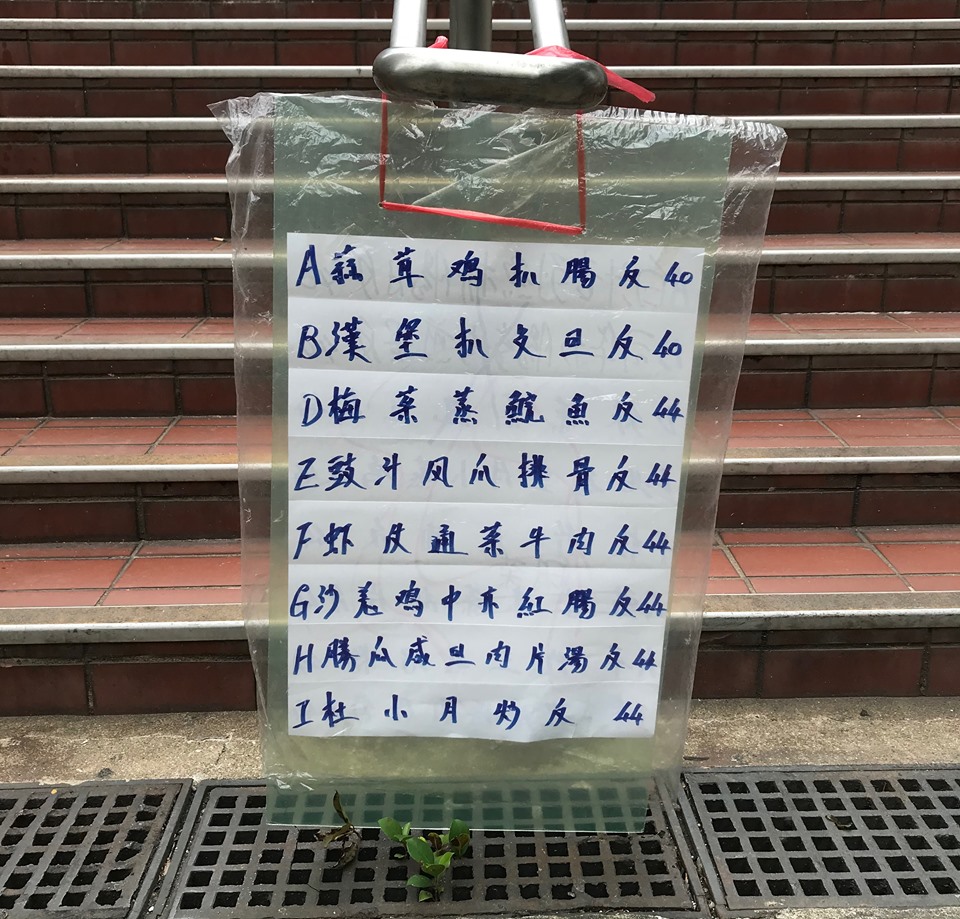 A蒜茸鸡扒腸反40
B漢堡扒文旦反40
D梅菜蒸鯇魚反44
E豉斗风爪排骨反44
F虾皮通菜牛肉反44
G沙羌鸡中亦紅腸反44
H勝瓜咸旦肉片湯反44
I杜小月炒反 44